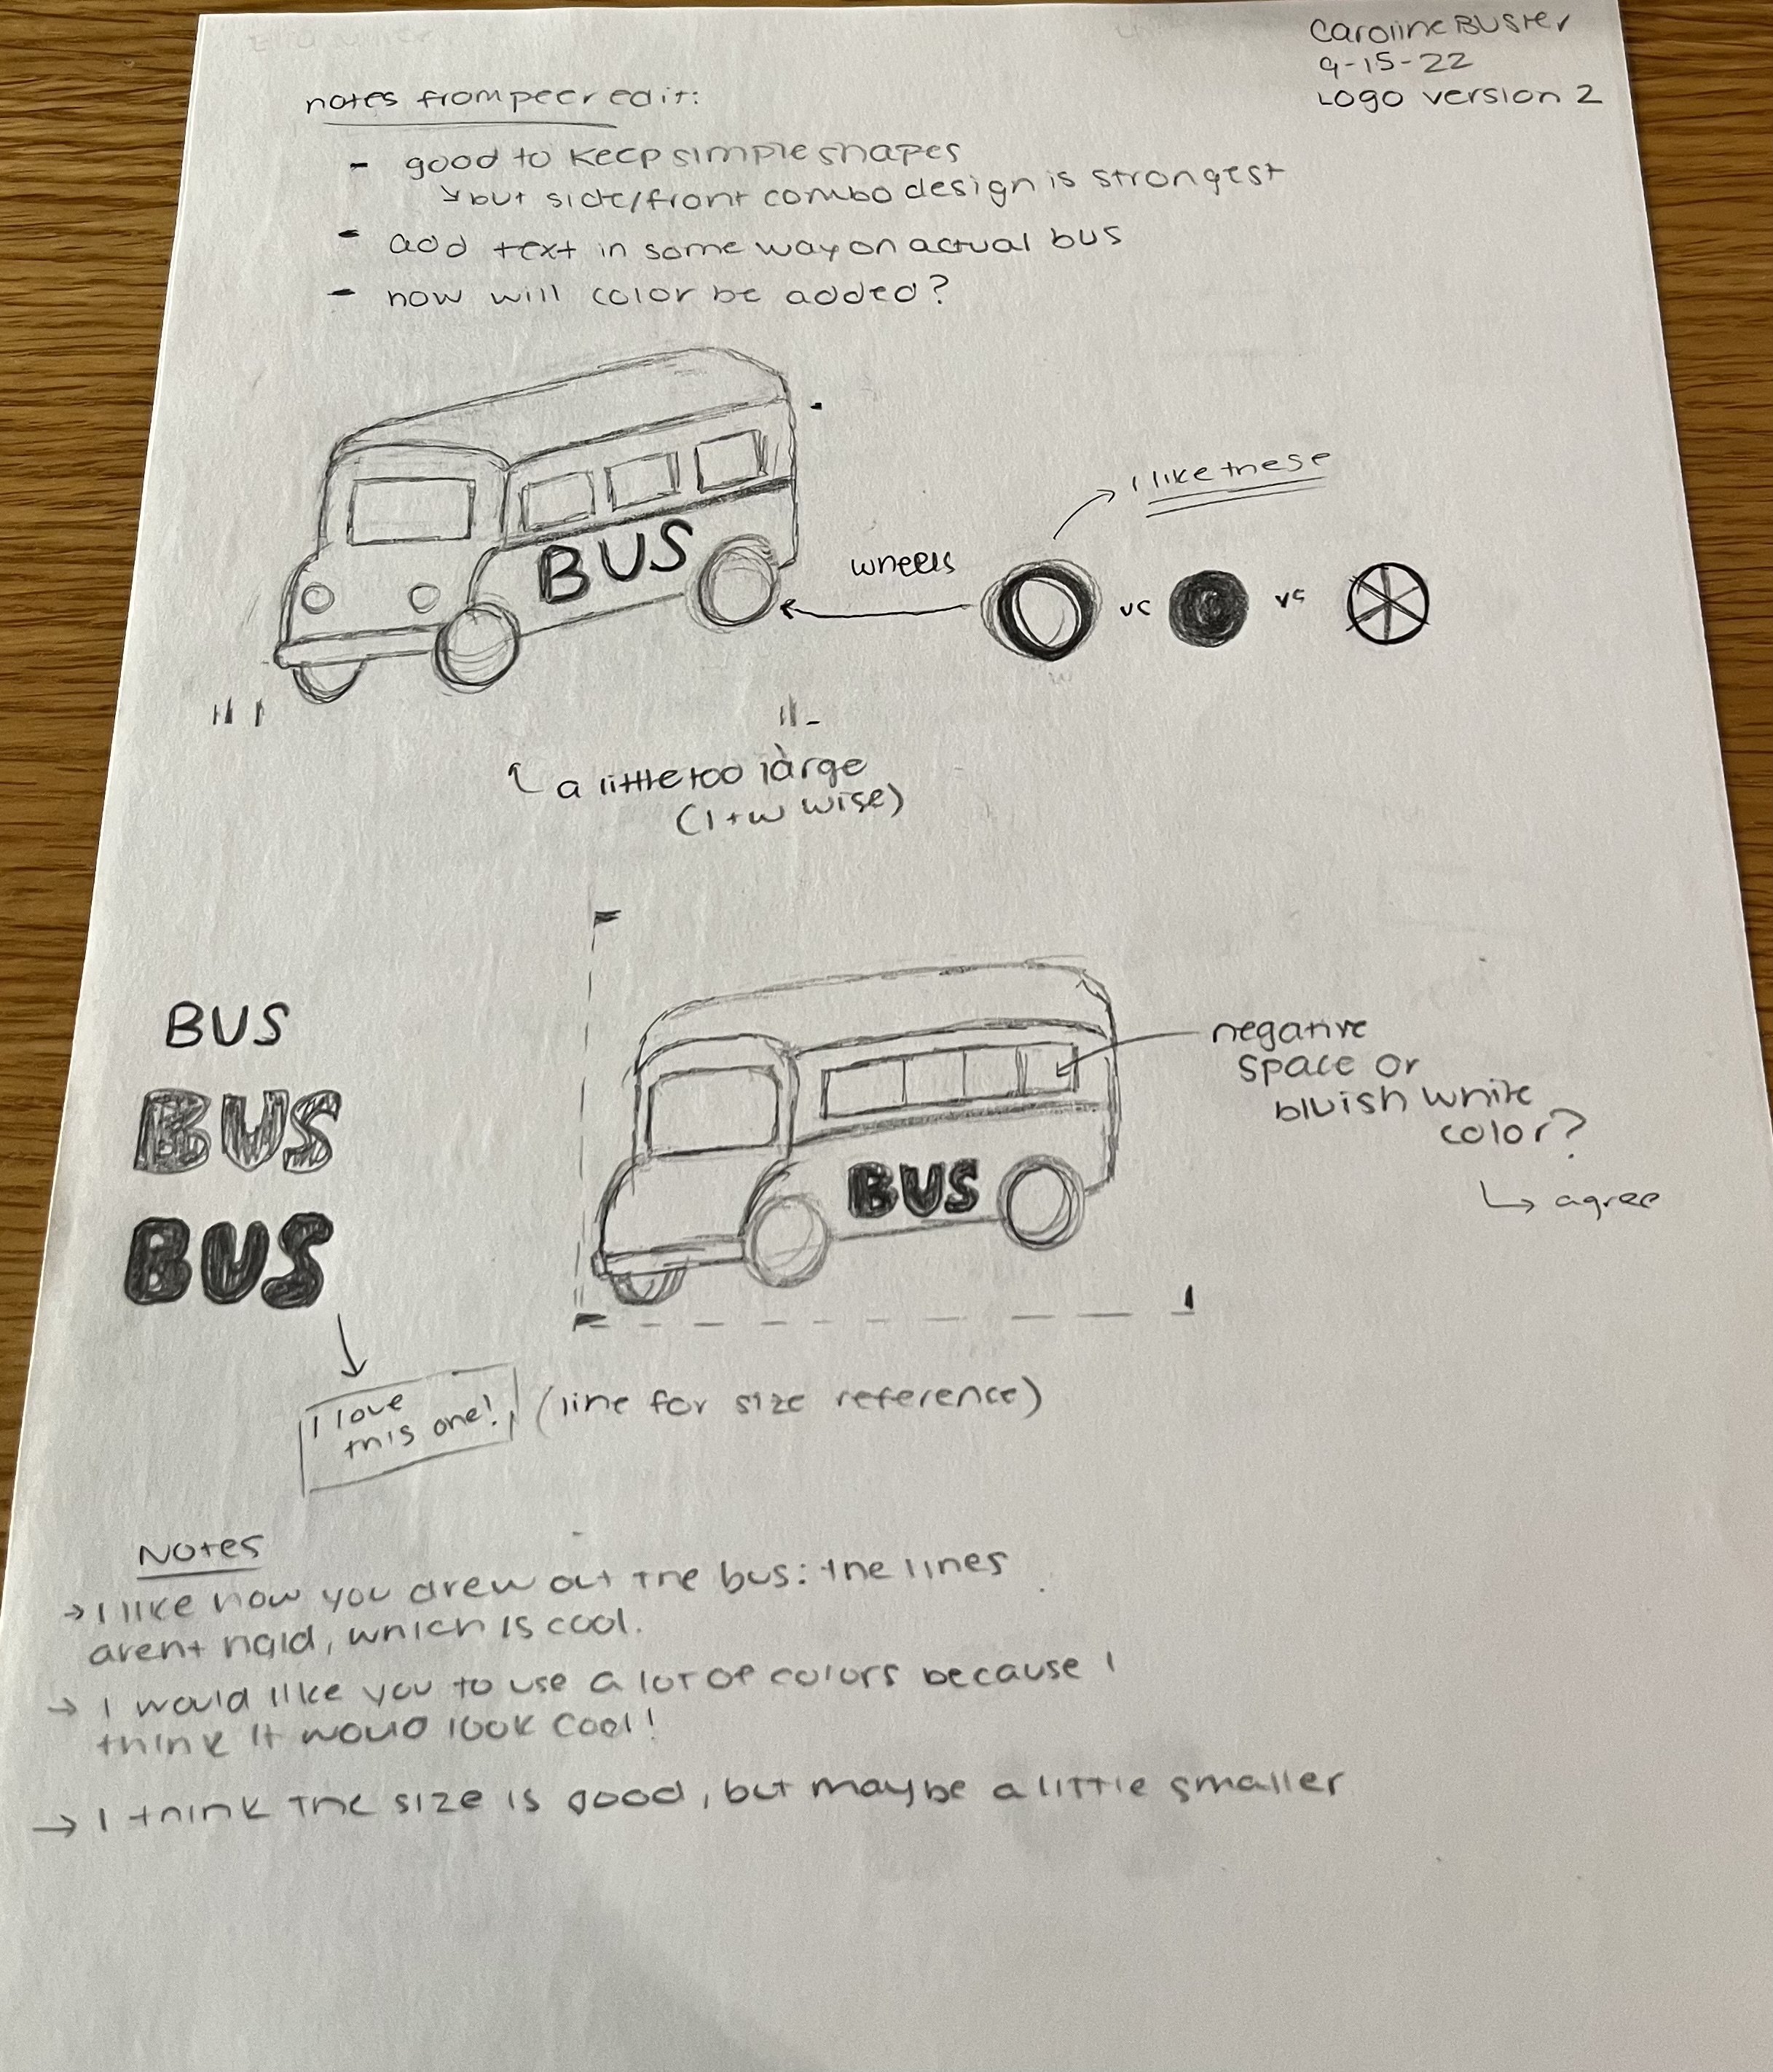 Caroline Buster
9-15-22
Logo version 2
notes from peer edit:
- good to keep simple shapes
↘ but side/front combo design is strongest
- add text in some way on actual bus
- how will color be added?
I like these
BUS
wheels
vs
vs
a little too large
(l+w wise)
BUS
BUS
BUS
BUS
negative
space or
bluish white
color?
↳ agree
I love
this one!
(line for size reference)
Notes
→ I like how you drew out the bus: the lines
arent rigid, which is cool.
→ I would like you to use a lot of colors because I
think it would look cool!
→ I think the size is good, but maybe a little smaller